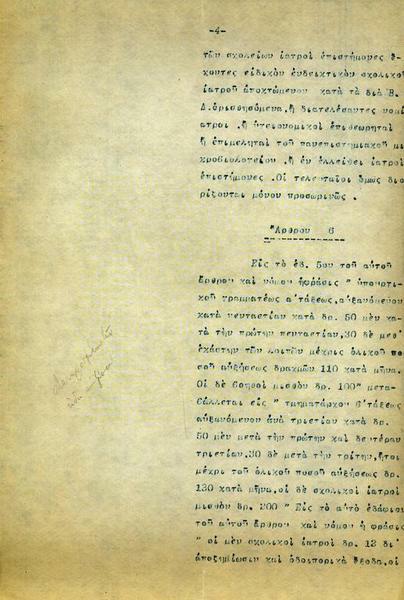 -4-
τῶν σχολείων ἰατροί ἐπιστήμονες ἔ-
χοντες εἰδικόν ἐνδεικτικόν σχολικοῦ
ἰατροῦ ἀποκτώμενον κατά τά διά Β.
Δ. ὁρισθησόμενα, ἤ διατελέσαντες νομί
ατροι , ἤ ὑγειονομικοί ἐπιθεωρηταί
ἤ ἐπιμεληταί τοῦ πανεπιστημιακοῦ μι
κροβιολογείου . ἤ ἐν ἐλλείψει ἰατροί
ἐπιστήμονες . Οἱ τελευταῖοι ὅμως διο
ρίζονται μόνον προσωρινῶς .
Ἄρθρον 6
Εἰς τό ἐδ. 5ον τοῦ αὐτοῦ
ἄρθρου καί νόμου ἡ φράσις " ὑπουργι-
κοῦ γραμματέως α΄ τάξεως, αὐξανόμενον
κατά πενταετίαν κατά δρ. 50 μέν κα-
τά τήν πρώτην πενταετίαν, 30 δέ μεθ'
ἑκάστην τῶν λοιπῶν μέχρις ὁλικοῦ πο
σοῦ αὐξήσεως δραχμῶν 110 κατά μῆνα.
Οἱ δέ βοηθοί μισθόν δρ. 100" μετα-
βάλλεται εἰς " τμηματάρχου β΄ τάξεως
αὐξανόμενον ἀνά τριετίαν κατά δρ.
50 μέν μετά τήν πρώτην καί δευτέραν
τριετίαν, 30 δέ μετά τήν τρίτην, ἤτοι
μέχρι τοῦ ὁλικοῦ ποσοῦ αὐξήσεως δρ.
130 κατά μῆνα, οἱ δέ σχολικοί ἰατροί
μισθόν δρ. 200 " Εἰς τό αὐτό ἐδάφιον
τοῦ αὐτοῦ ἄρθρου καί νόμου ἡ φράσις
" οἱ μέν σχολικοί ἰατροί δρ. 12 δι'
ἀποζημίωσιν καί ὁδοιπορικά ἔξοδα, οἱ